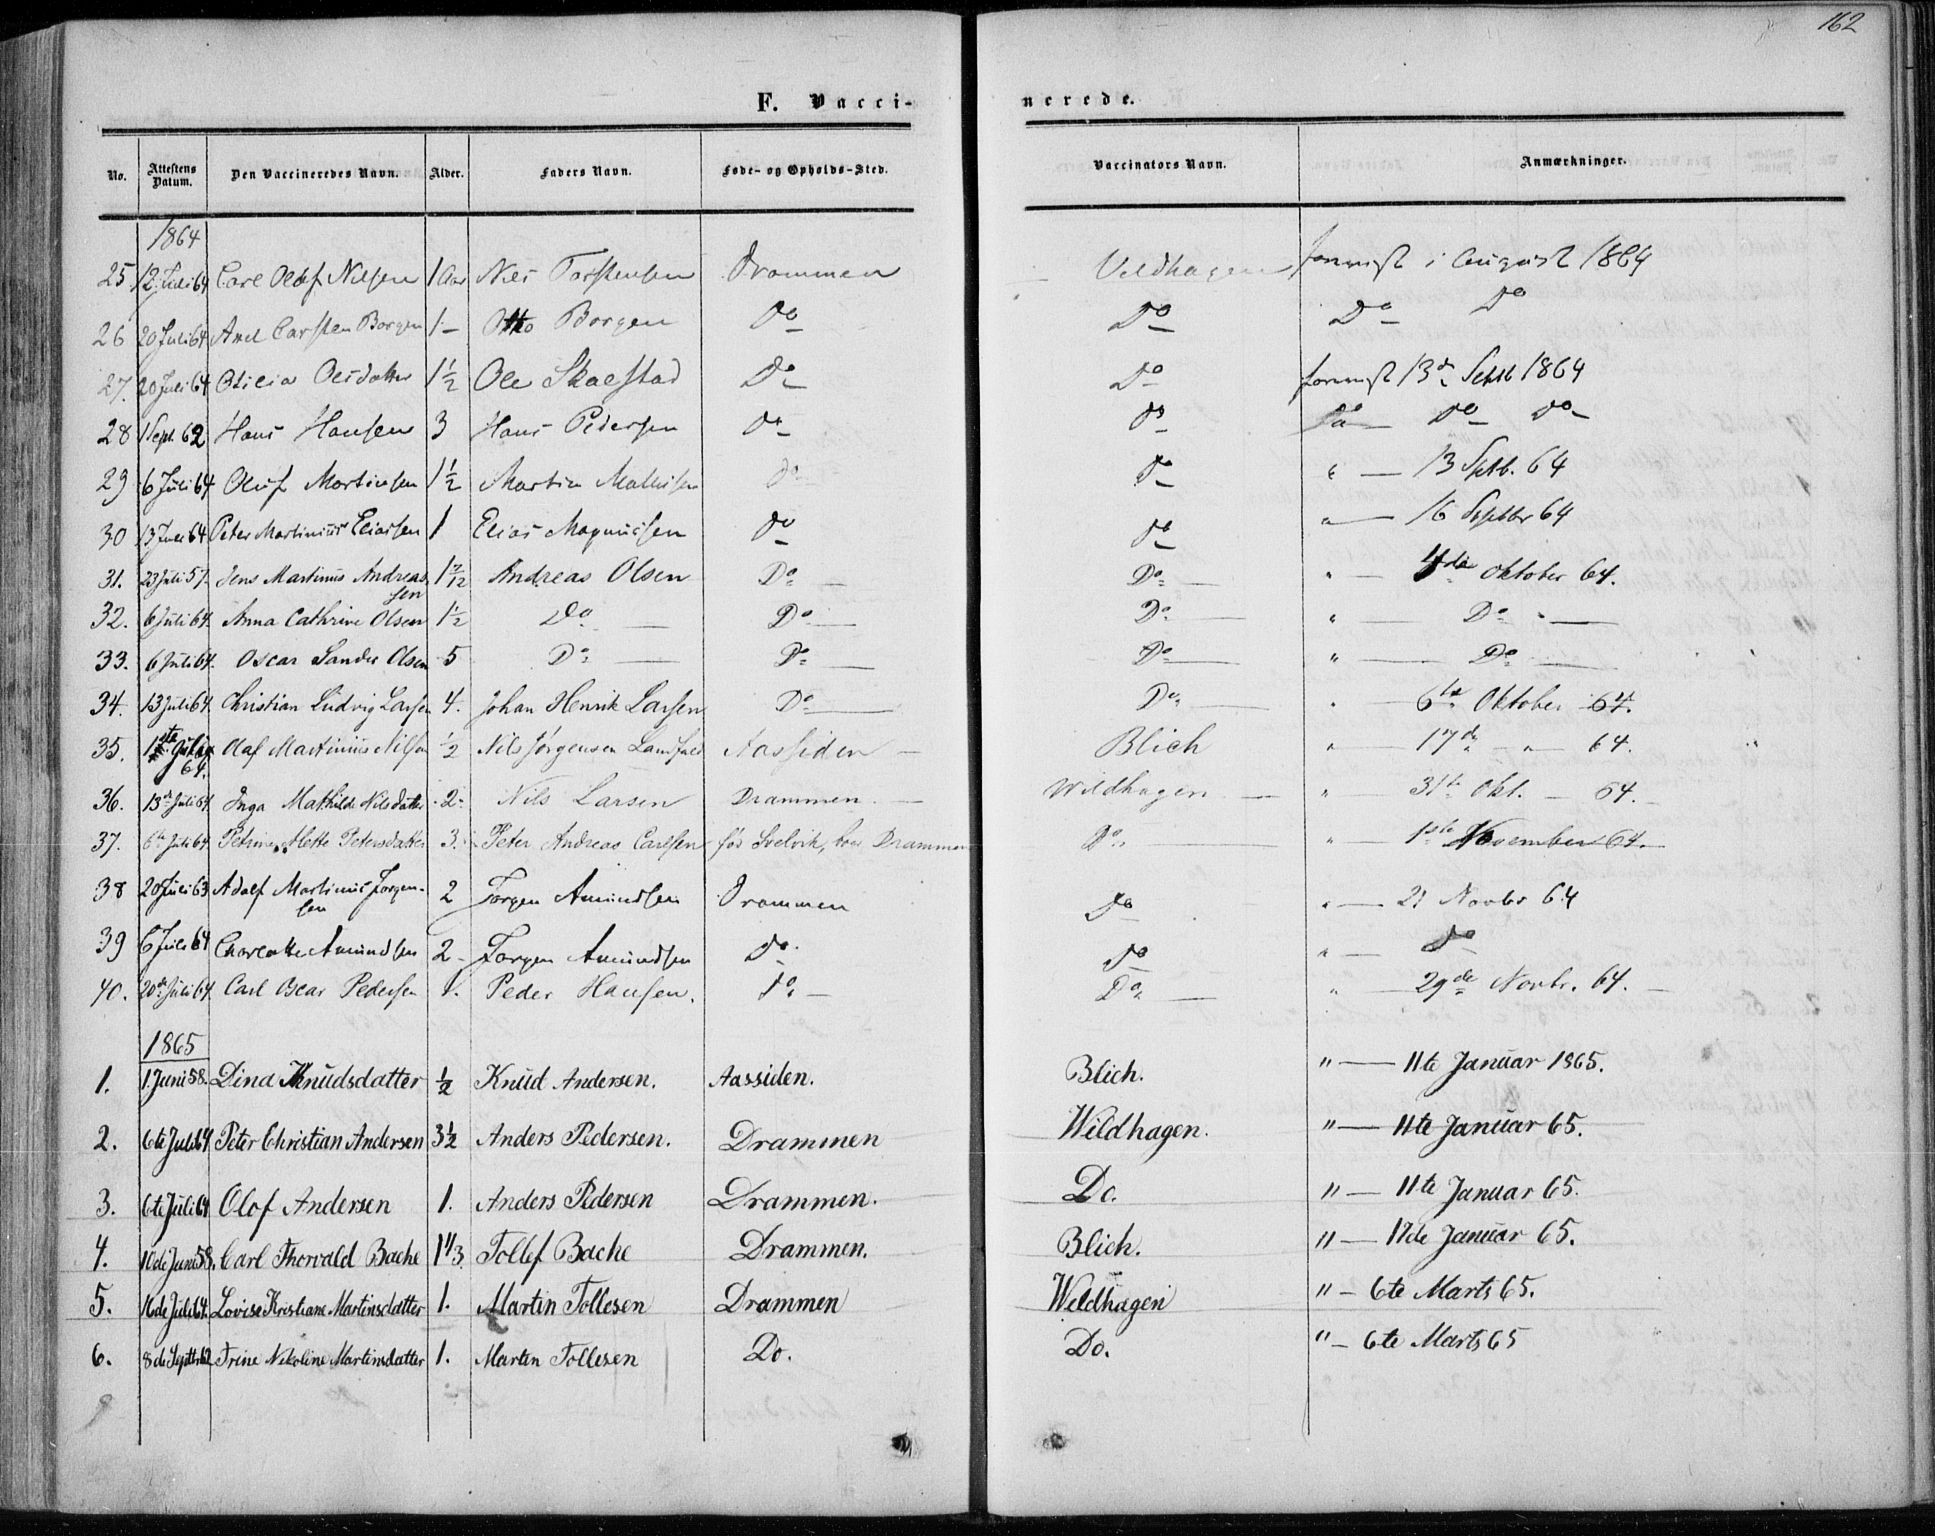 162
F. Vaccinerede.
No. Attestens Datum. Den Vaccineredes Navn. Alder. Faders Navn. Føde- og Opholds-Sted. Vaccinators Navn. Anmærkninger.
1864
25 12 Juli 64 Carl Olaf Nilsen 1 Aar Niels Torstensen Drammen Veldhagen forevist i August 1864
26 20 Juli 64 Axel Carsten Borgen 1 — Otto Borgen Do Do Do Do
27. 20 Juli 64 Otilia Olsdatter 1½ Ole Skalstad Do Do forevist 13de Septb 1864
28 1 Sept. 62 Hans Hansen 3 Hans Pedersen Do Do Do Do Do
29 6 Juli 64 Oluf Martinsen 1½ Martin Mathisen Do Do " — 13 Septb. 64
30 13 Juli 64 Peter Martinius Eliassen 1 Elias Magnussen Do Do " — 16 Septbr 64
31. 23 Juli 57. Jens Martinus Andreassen 1 7/12 Andreas Olsen Do — Do — " — 4de Oktober 64.
32. 6 Juli 64. Anna Cathrine Olsen 1½ Do — Do — Do — " — Do " —
33. 6 Juli 64. Oscar Sander Olsen 5 Do — Do — Do — " — Do —
34. 13 Juli 64. Christian Ludvig Larsen 4. Johan Henrik Larsen Do — Do — " — 6te Oktober 64.
35. 1ste Juli 64. Olaf Martinius Nilsen ½ Nils Jørgensen Aassiden — Blich " — 17de — " — 64.
36. 13de Juli 64. Inga Mathilde Nilsdatter 2 Nils Larsen Drammen. — Wildhagen — " — 31te Okt. — 64. —
37. 6te Juli 64. Petrine Mette Petersdatter 3. Peter Andreas Carlsen fød Svelvik, boer Drammen Do. — " — 1ste November 64. —
38 20 Juli 63 Adolf Martinus Jørgensen 2 Jørgen Amundsen Drammen Do " — 21 Novbr 64
39 6 Juli 64 Charlotte Amundsen 2 — Jørgen Amundsen Do. Do " — Do
40. 20de Juli 64. Carl Oscar Pedersen 1. Peder Hansen. Do — Do — " — 29de Novbr. 64. —
1865
1. 1. Juni 58. Dina Knudsdatter ½ Knud Andersen. Aassiden. Blich. " — 11te Januar 1865.
2. 6te Juli 64 Peter Christian Andersen 3½ Anders Pedersen. Drammen Wildhagen. " — 11te Januar 65.
3. 6te Juli 64 Olof Andersen 1. Anders Pedersen Drammen. Do. " — 11te Januar 65.
4. 10de Juni 58. Carl Thorvald Bache Tollef Bache Drammen. Blich. " — 17de Januar 65.
5. 16de Juli 64. Lovise Kristiane Martinsdatter 1. Martin Tollesen Drammen Weldhagen " — 6te Marts 65.
6. 8de Septbr 62 Trine Nikoline Martinsdatter 1. Martin Tollesen Do. Do. " — 6te Marts 65